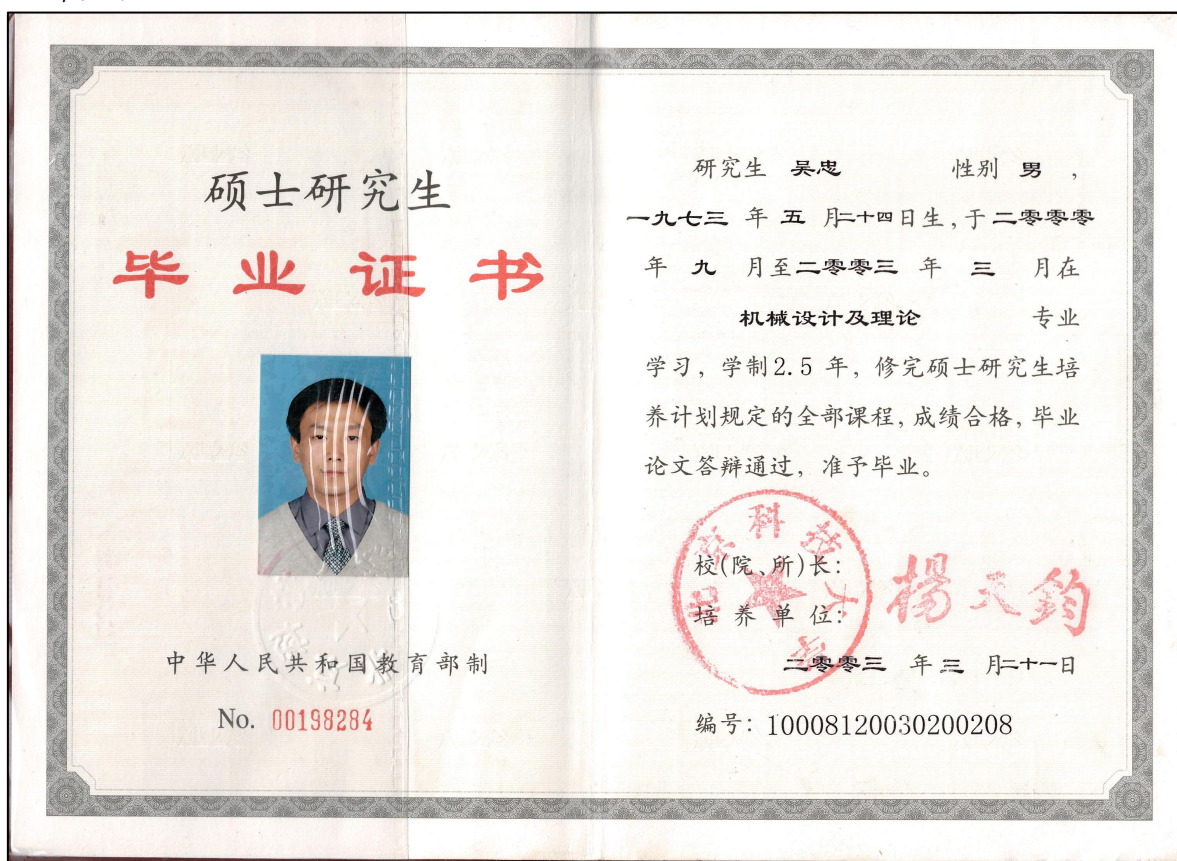 硕士研究生
毕业证书
中华人民共和国教育部制
No. 00198284
研究生 吴忠 性别 男 ,
一九七三 年 五 月二十四日生,于二零零零
年 九 月至二零零三 年 三 月在
机械设计及理论 专业
学习, 学制2.5 年, 修完硕士研究生培
养计划规定的全部课程, 成绩合格, 毕业
论文答辩通过, 准予毕业。
北京科技大学
校(院、所)长:
楊天鈞
培养单位:
二零零三 年 三 月二十一日
编号: 10008120030200208